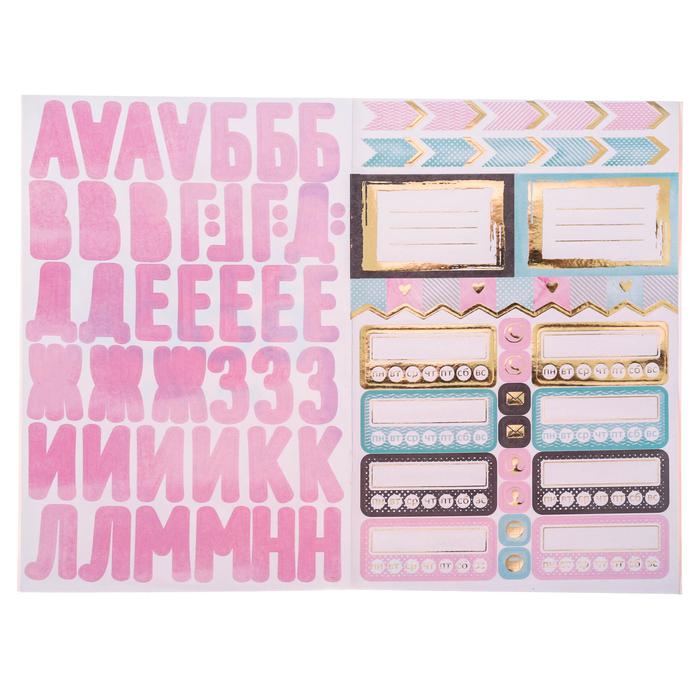 АААААБББ
ВВВГГГД
ДДЕЕЕЕЕ
ЖЖЖЗЗЗ
ИИИИИКК
ЛЛММНН
пн вт ср чт пт сб вс
пн вт ср чт пт сб вс
пн вт ср чт пт сб вс
пн вт ср чт пт сб вс
пн вт ср чт пт сб вс
пн вт ср чт пт сб вс
пн вт ср чт пт сб вс
пн вт ср чт пт сб вс